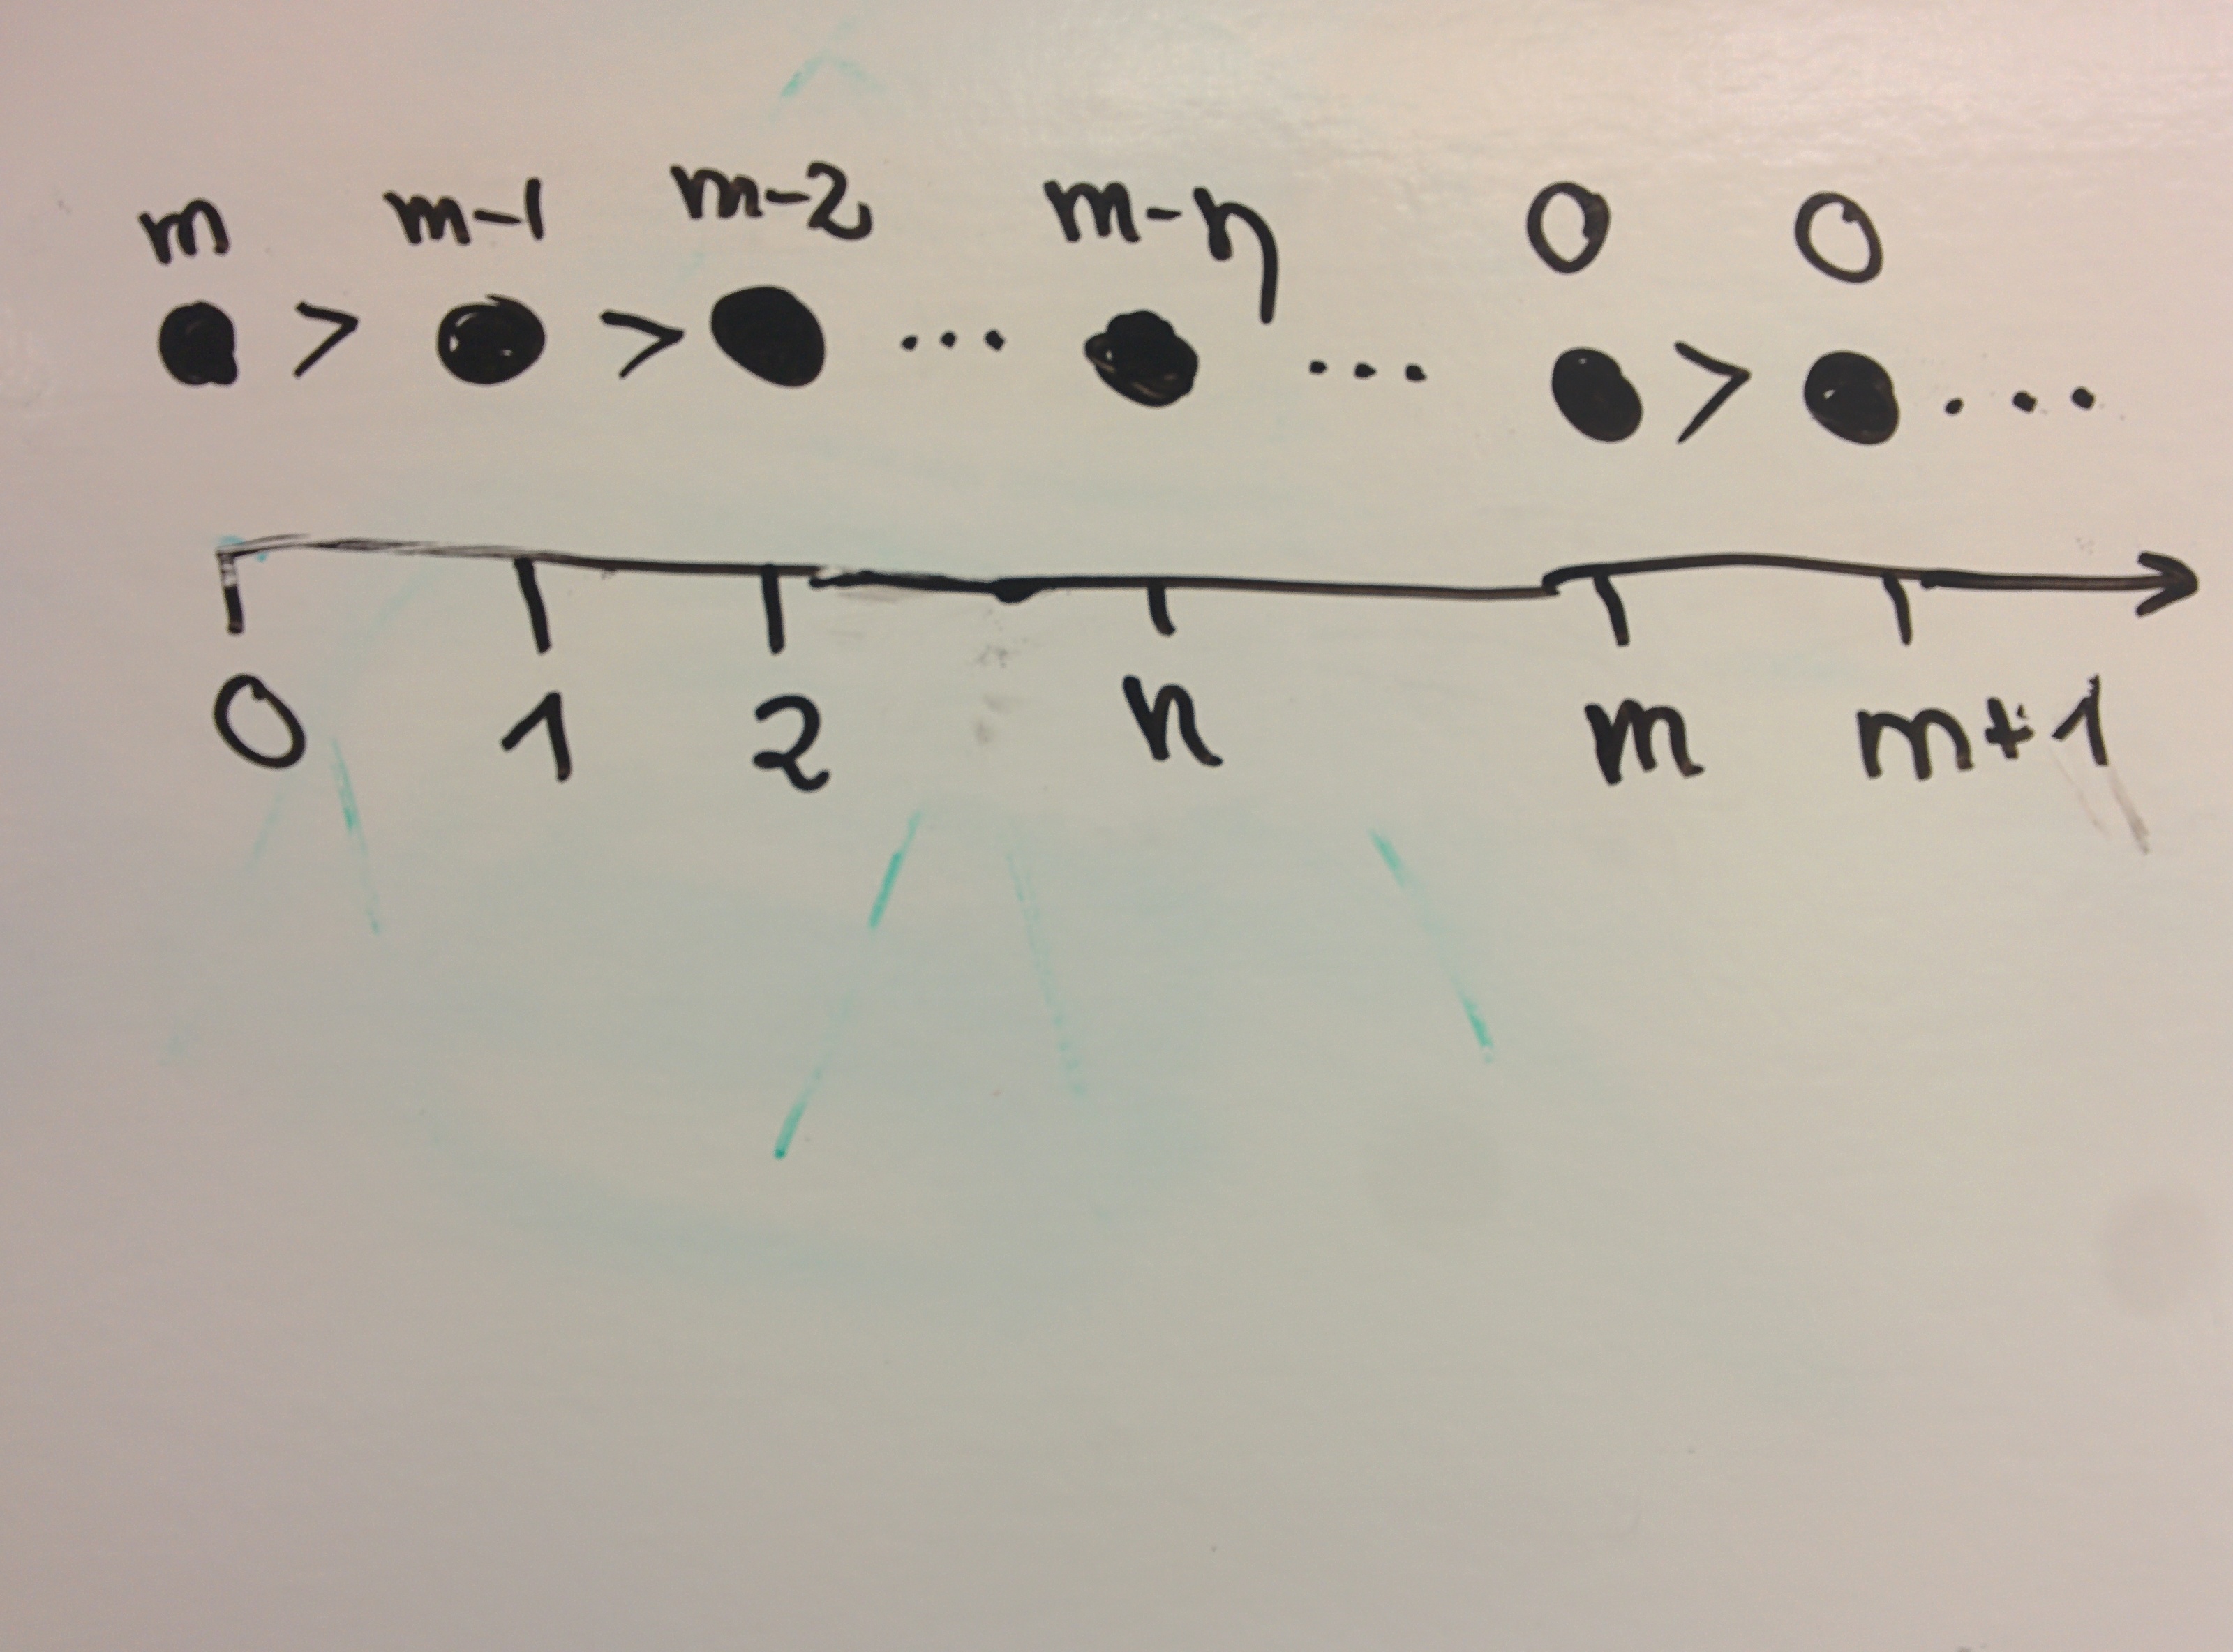 m m-1 m-2 m-n 0 0
● > ● > ● ... ● ... ● > ● ...
0 1 2 n m m+1